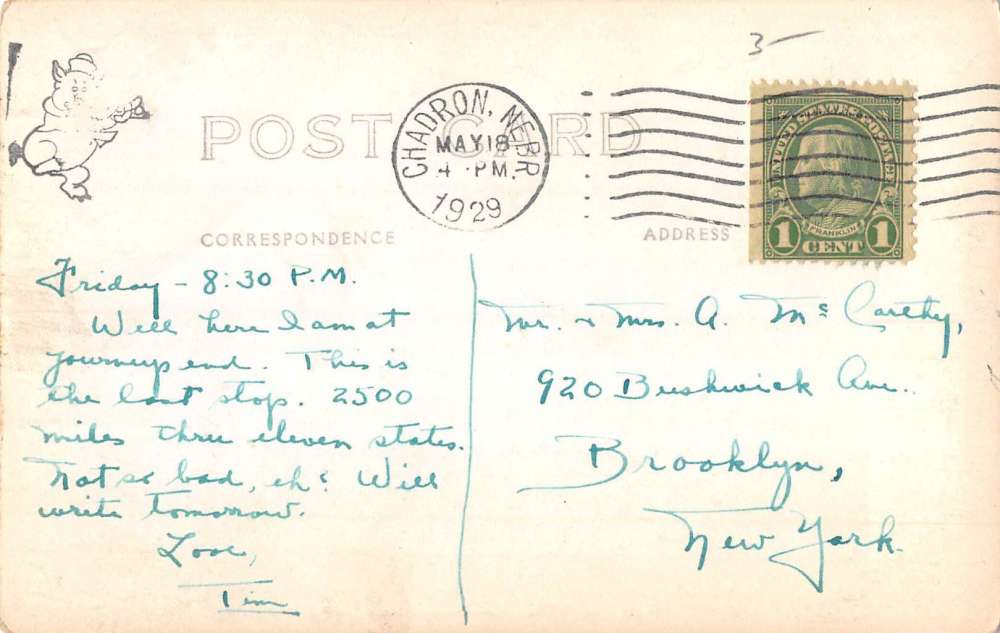 3-
POST CARD
CHADRON, NEBR
MAY 18
4 PM
1929
FRANKLIN
1 CENT 1
CORRESPONDENCE
ADDRESS
Friday - 8:30 P.M.
Well here I am at
journeys end. This is
the last stop. 2500
miles thru eleven states.
Not so bad, eh? Will
write tomorrow.
Love,
Tim
Mr. & Mrs. A. McCarthy,
920 Bushwick Ave.
Brooklyn,
New York.